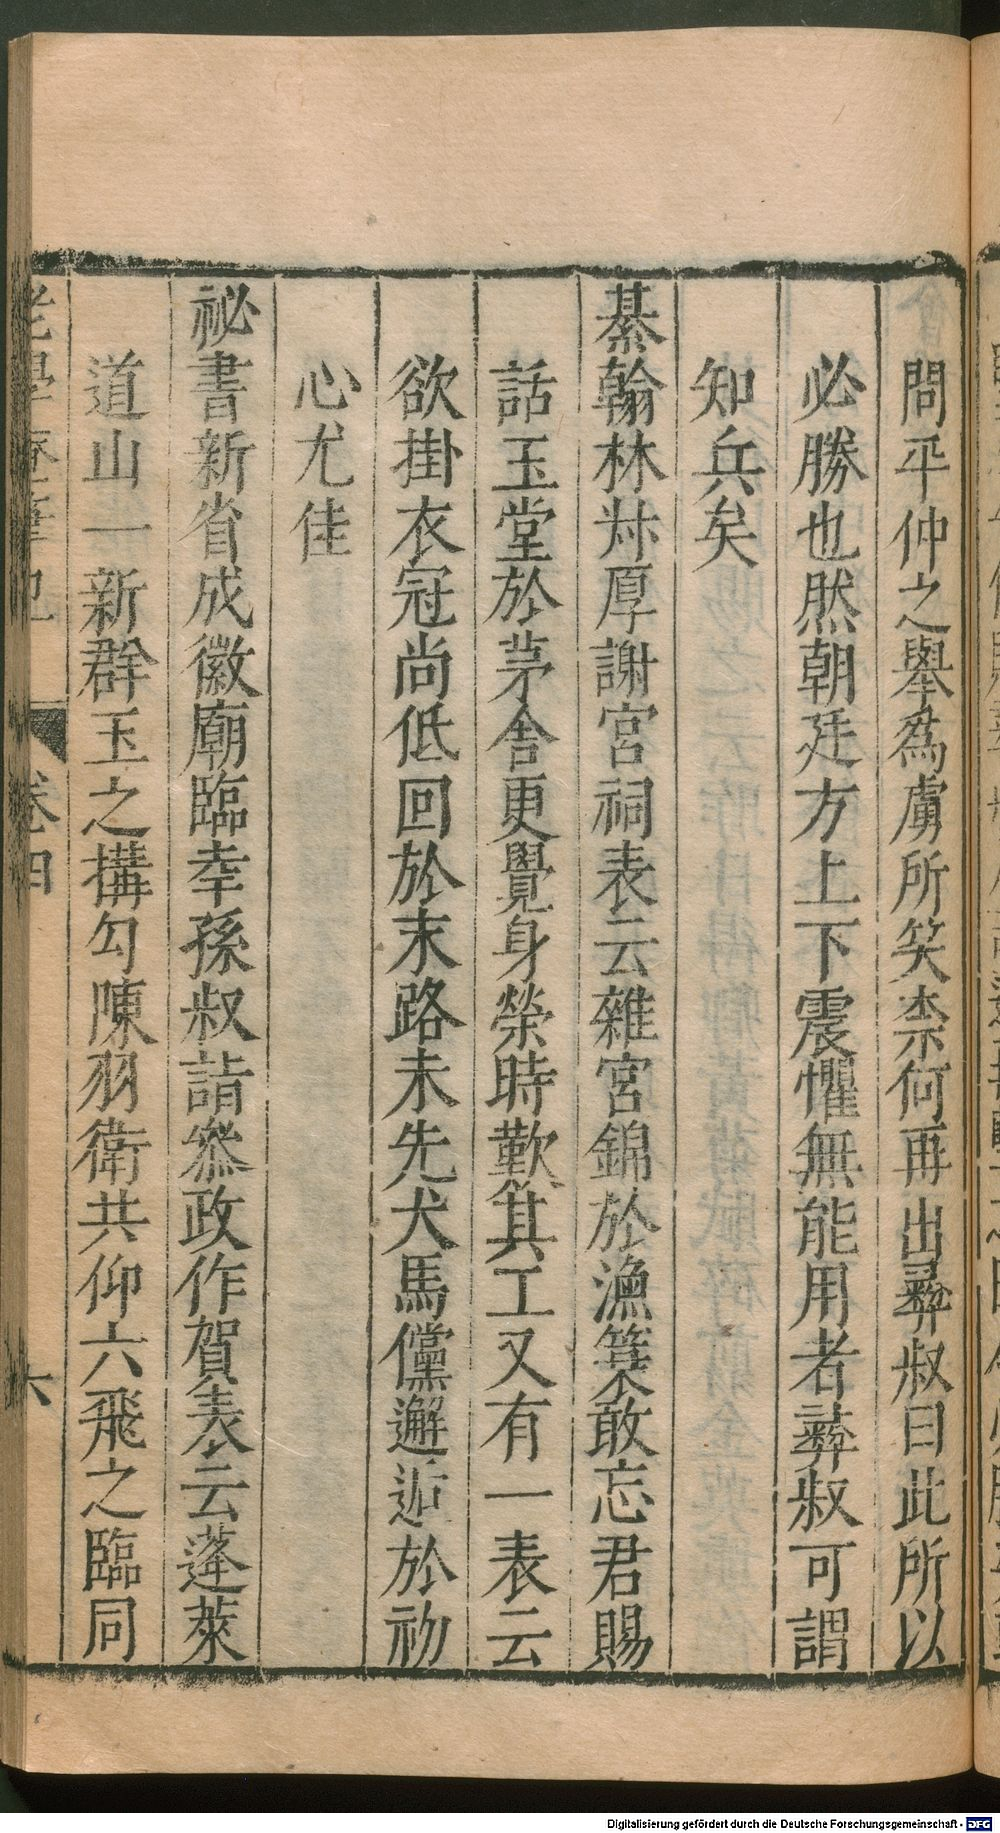 問平仲之舉爲虜所笑柰何再出彛叔曰此所以
必勝也然朝廷方上下震懼無能用者彛叔可謂
知兵矣
綦翰林叔厚謝宮祠表云雜宮錦於漁簑敢忘君賜
話玉堂於茅舍更覺身榮時歎其工又有一表云
欲掛衣冠尚低回於末路未先犬馬儻邂逅於初
心尤佳
祕書新省成徽廟臨幸孫叔詣叅政作賀表云蓬萊
道山一新群玉之搆勾陳羽衛共仰六飛之臨同
老學庵筆記 卷四 六
Digitalisierung gefördert durch die Deutsche Forschungsgemeinschaft - DFG